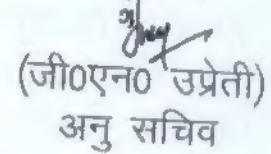 (जी0एन0 उप्रेती)
अनु सचिव